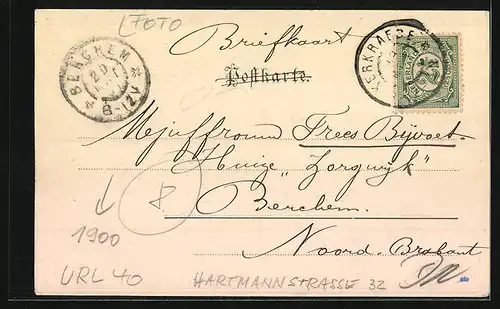 FOTO
Briefkaart
Postkarte.
BERGHEM
8-12V
KERKRADE
Mejuffrouw Frees Bijvoet.
Huize „Zorgwijk"
Berchem.
Noord-Brabant
8
1900
URL 40
HARTMANNSTRASSE 32